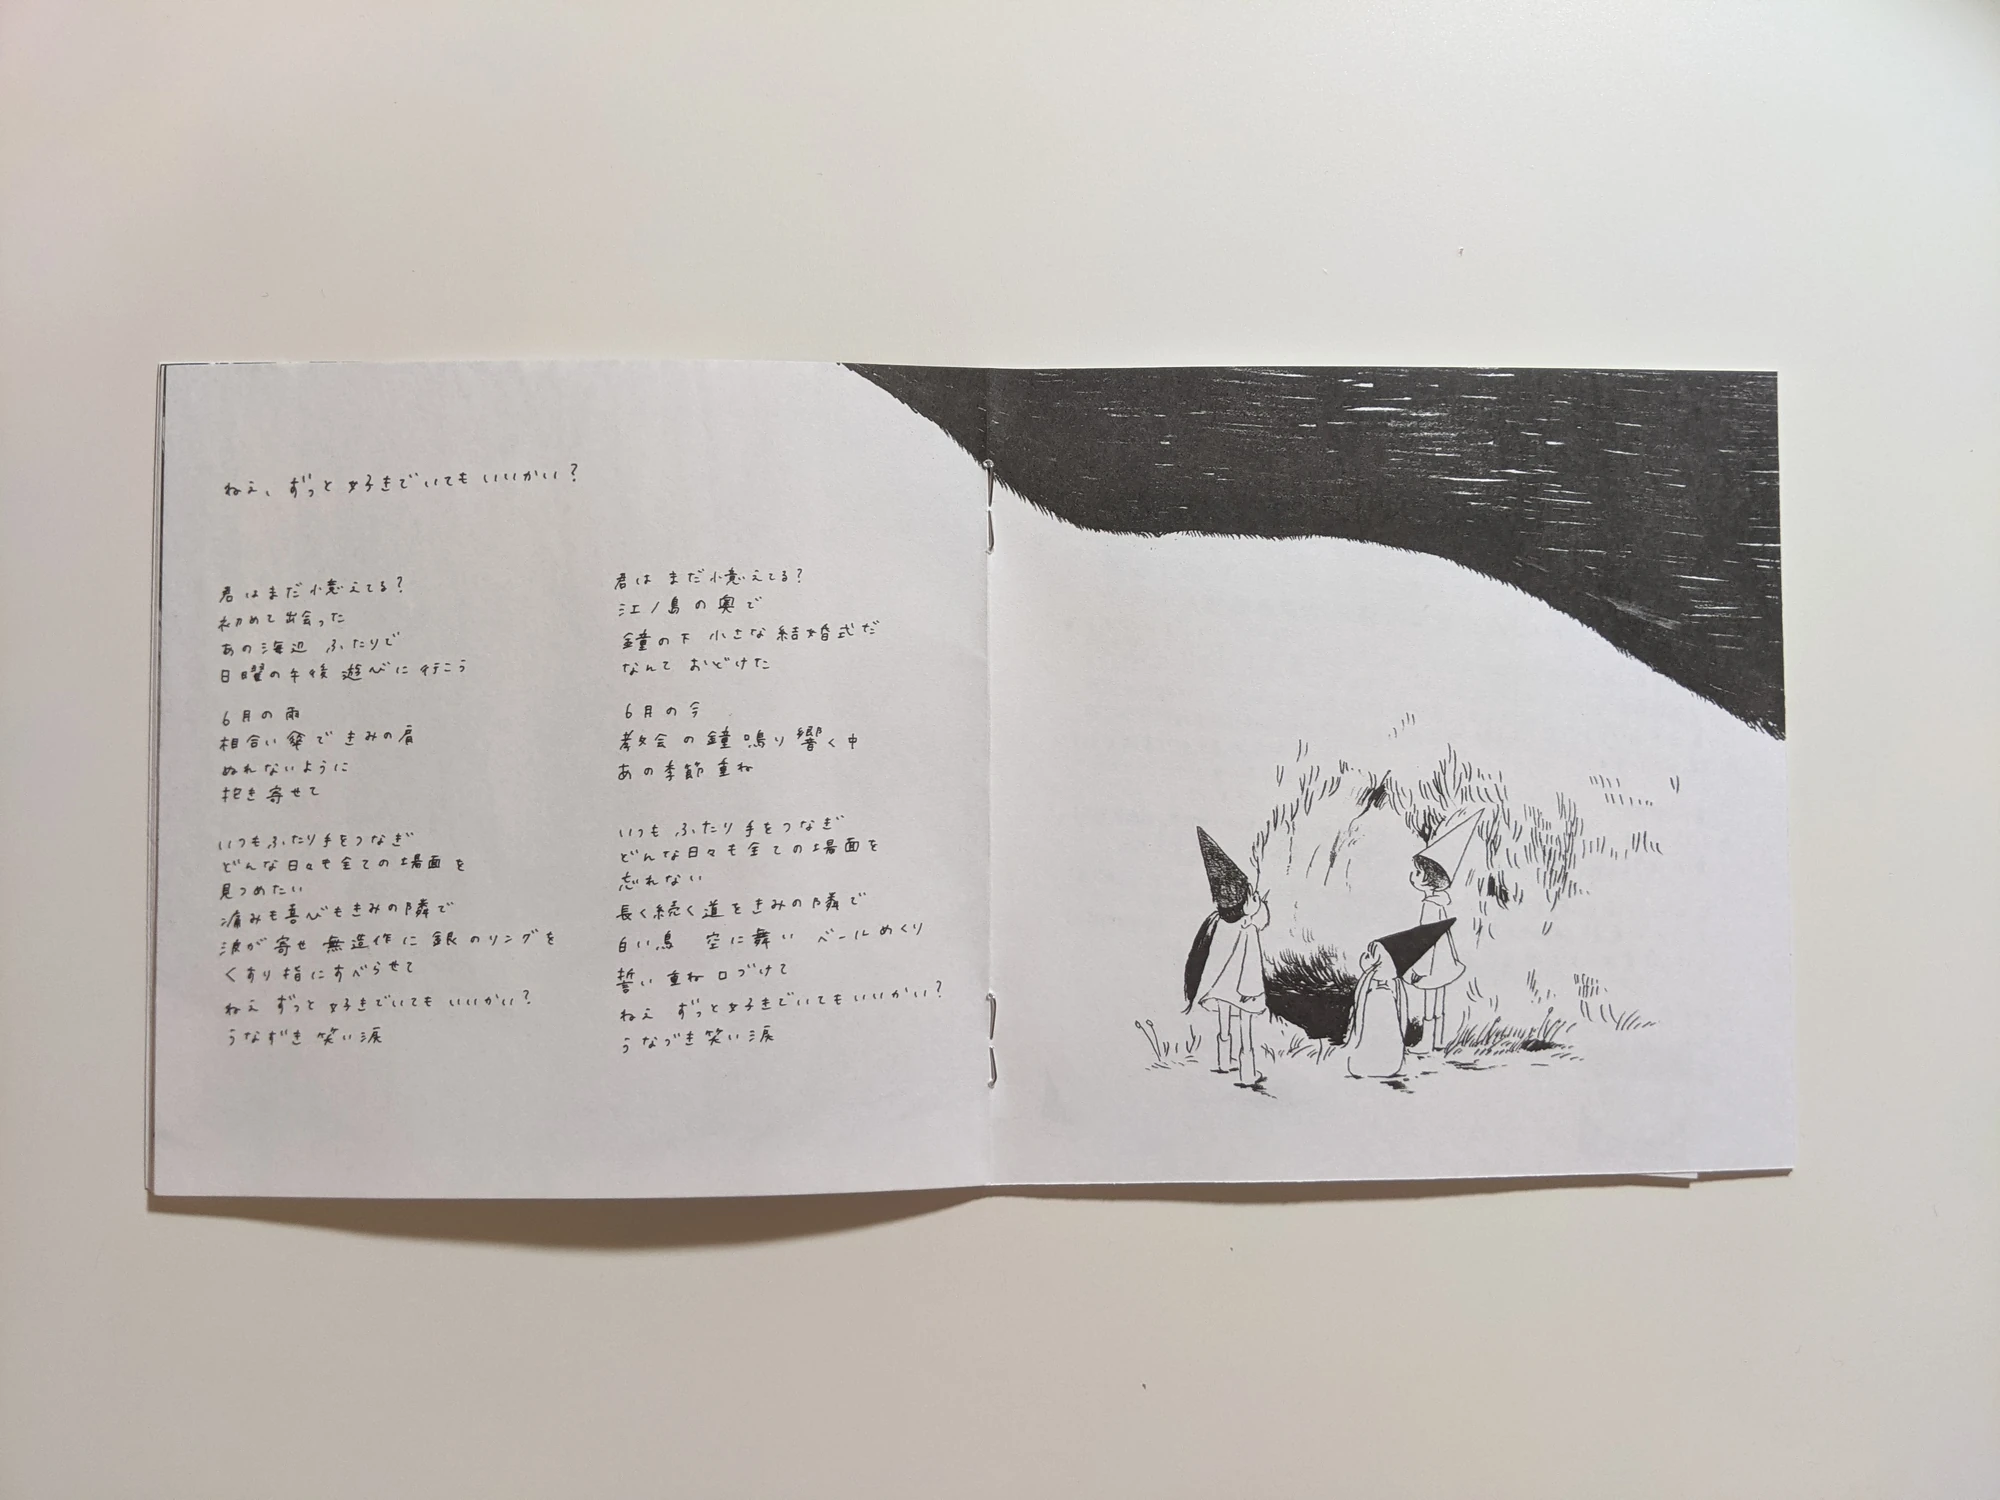 ねえ、ずっと好きでいてもいいかい?
君はまだ憶えてる?
初めて出会った
あの海辺 ふたりで
日曜の午後 遊びに行こう
6月の雨
相合い傘で きみの肩
ぬれないように
抱き寄せて
いつもふたり手をつなぎ
どんな日々も全ての場面を
見つめたい
痛みも喜びもきみの隣で
波が寄せ 無造作に 銀のリングを
くすり指にすべらせて
ねえ ずっと好きでいても いいかい?
うなずき 笑い涙
君は まだ憶えてる?
江ノ島の奥で
鐘の下 小さな結婚式だ
なんて おどけた
6月の今
教会の鐘 鳴り響く中
あの季節重ね
いつも ふたり手をつなぎ
どんな日々も全ての場面を
忘れない
長く続く道を きみの隣で
白い鳥 空に舞い ベールめくり
誓い重ね 口づけて
ねえ ずっと好きでいてもいいかい?
うなづき 笑い涙